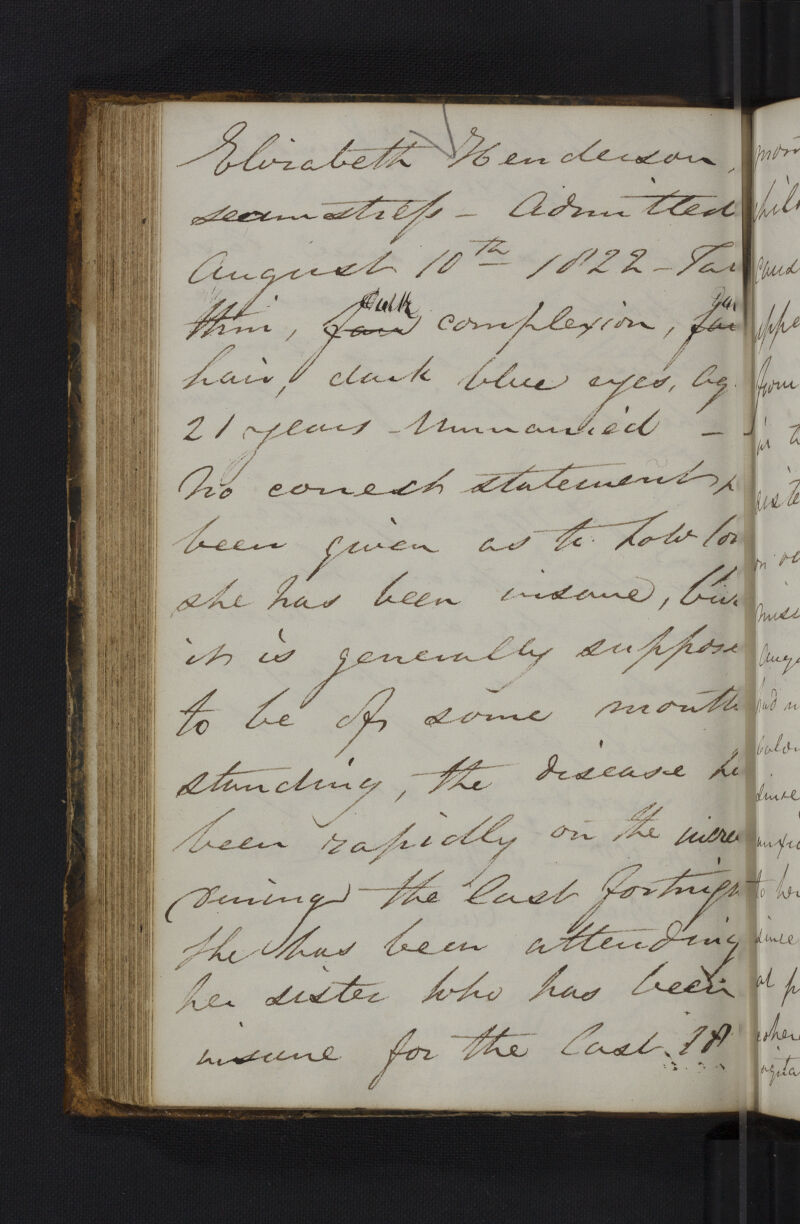 Elizabeth Henderson,
seamstress - Admitted
August 10th 1822 - Tal
thin, fair Dark complexion, fai Dar
hair, dark blue eyes, ag
21 years - Unmarried -
No correct statement h
been given as to how lon
she has been insane, but
it is generally suppose
to be of some month
standing, the disease ha
been rapidly on the increa
During the last fortnigh
she has been attending
her sister who has been
insane for the last 18